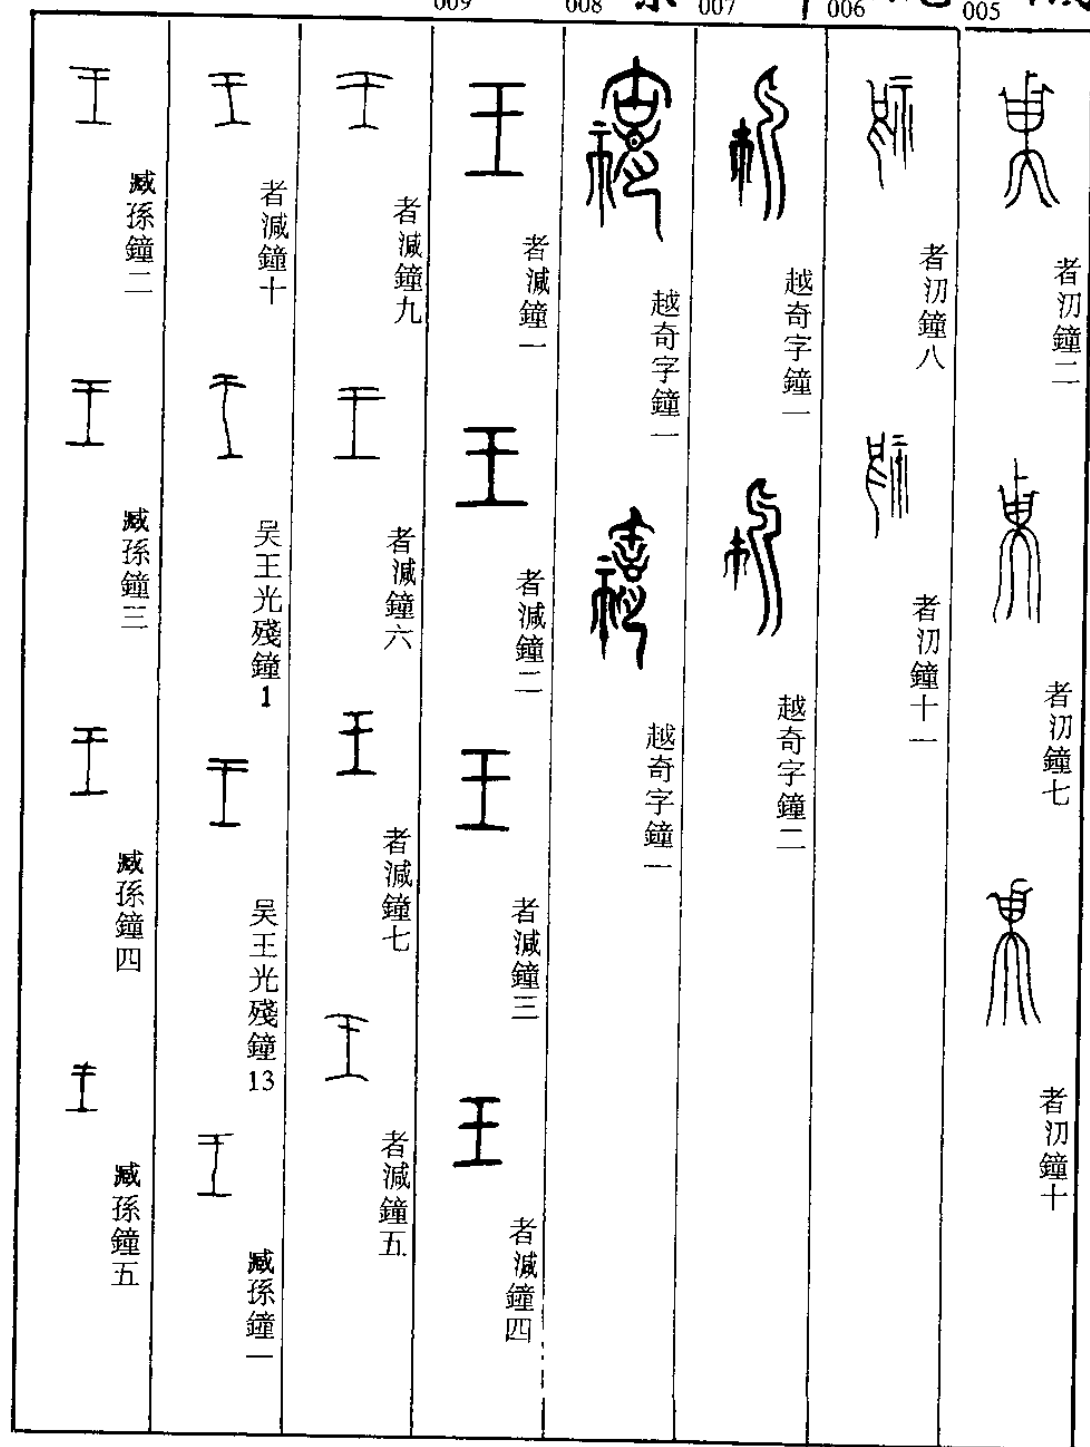 005
者汈鐘二
者汈鐘七
者汈鐘十
006
者汈鐘八
者汈鐘十一
007
越奇字鐘一
越奇字鐘二
008
越奇字鐘一
越奇字鐘一
009
王
者減鐘一
王
者減鐘二
王
者減鐘三
王
者減鐘四
王
者減鐘九
王
者減鐘六
王
者減鐘七
王
者減鐘五
王
者減鐘十
王
吴王光殘鐘1
王
吴王光殘鐘13
王
臧孫鐘一
王
臧孫鐘二
王
臧孫鐘三
王
臧孫鐘四
王
臧孫鐘五